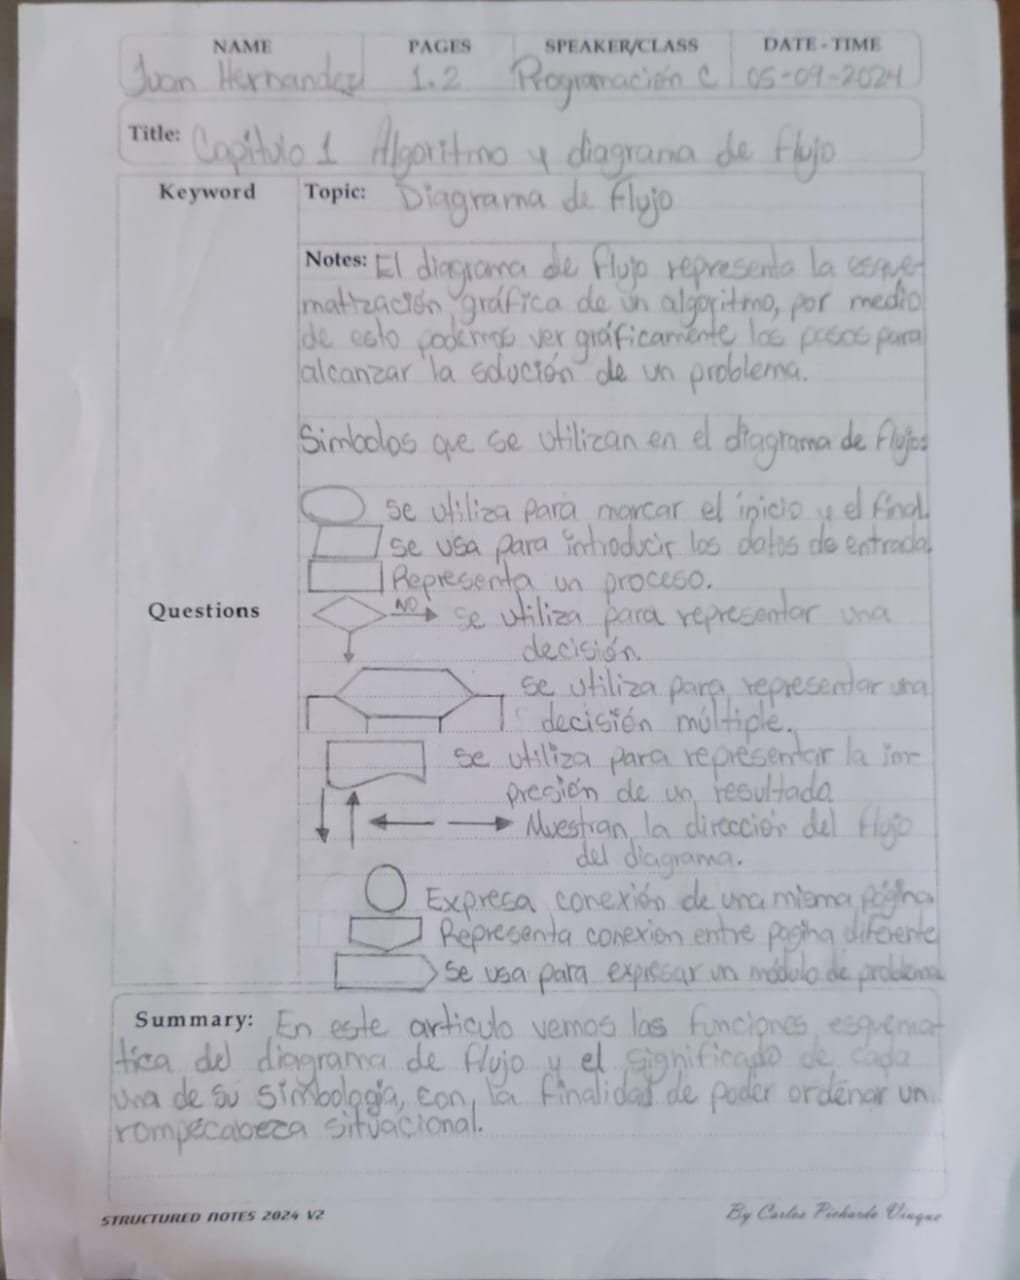 NAME PAGES SPEAKER/CLASS DATE - TIME
Juan Hernandez 1.2 Programación C 05-09-2024
Title: Capitulo 1 Algoritmo y diagrama de flujo
Keyword
Topic: Diagrama de flujo
Notes: El diagrama de flujo representa la esque-
matización gráfica de un algoritmo, por medio
de esto podemos ver gráficamente los pasos para
alcanzar la solución de un problema.
Simbolos que se utilizan en el diagrama de flujo:
se utiliza para marcar el inicio y el final.
se usa para introducir los datos de entrada.
Representa un proceso.
Questions
NO se utiliza para representar una
decisión.
se utiliza para representar una
decisión múltiple.
se utiliza para representar la im-
presión de un resultado
Muestran la dirección del flujo
del diagrama.
Expresa conexión de una misma página.
Representa conexion entre pagina diferente
se usa para expresar un módulo de problema
Summary: En este articulo vemos las funciones esquema-
tica del diagrama de flujo y el significado de cada
una de su simbología, con la finalidad de poder ordenar un
rompecabeza situacional.
STRUCTURED NOTES 2024 V2
By Carlos Pichardo Viuque